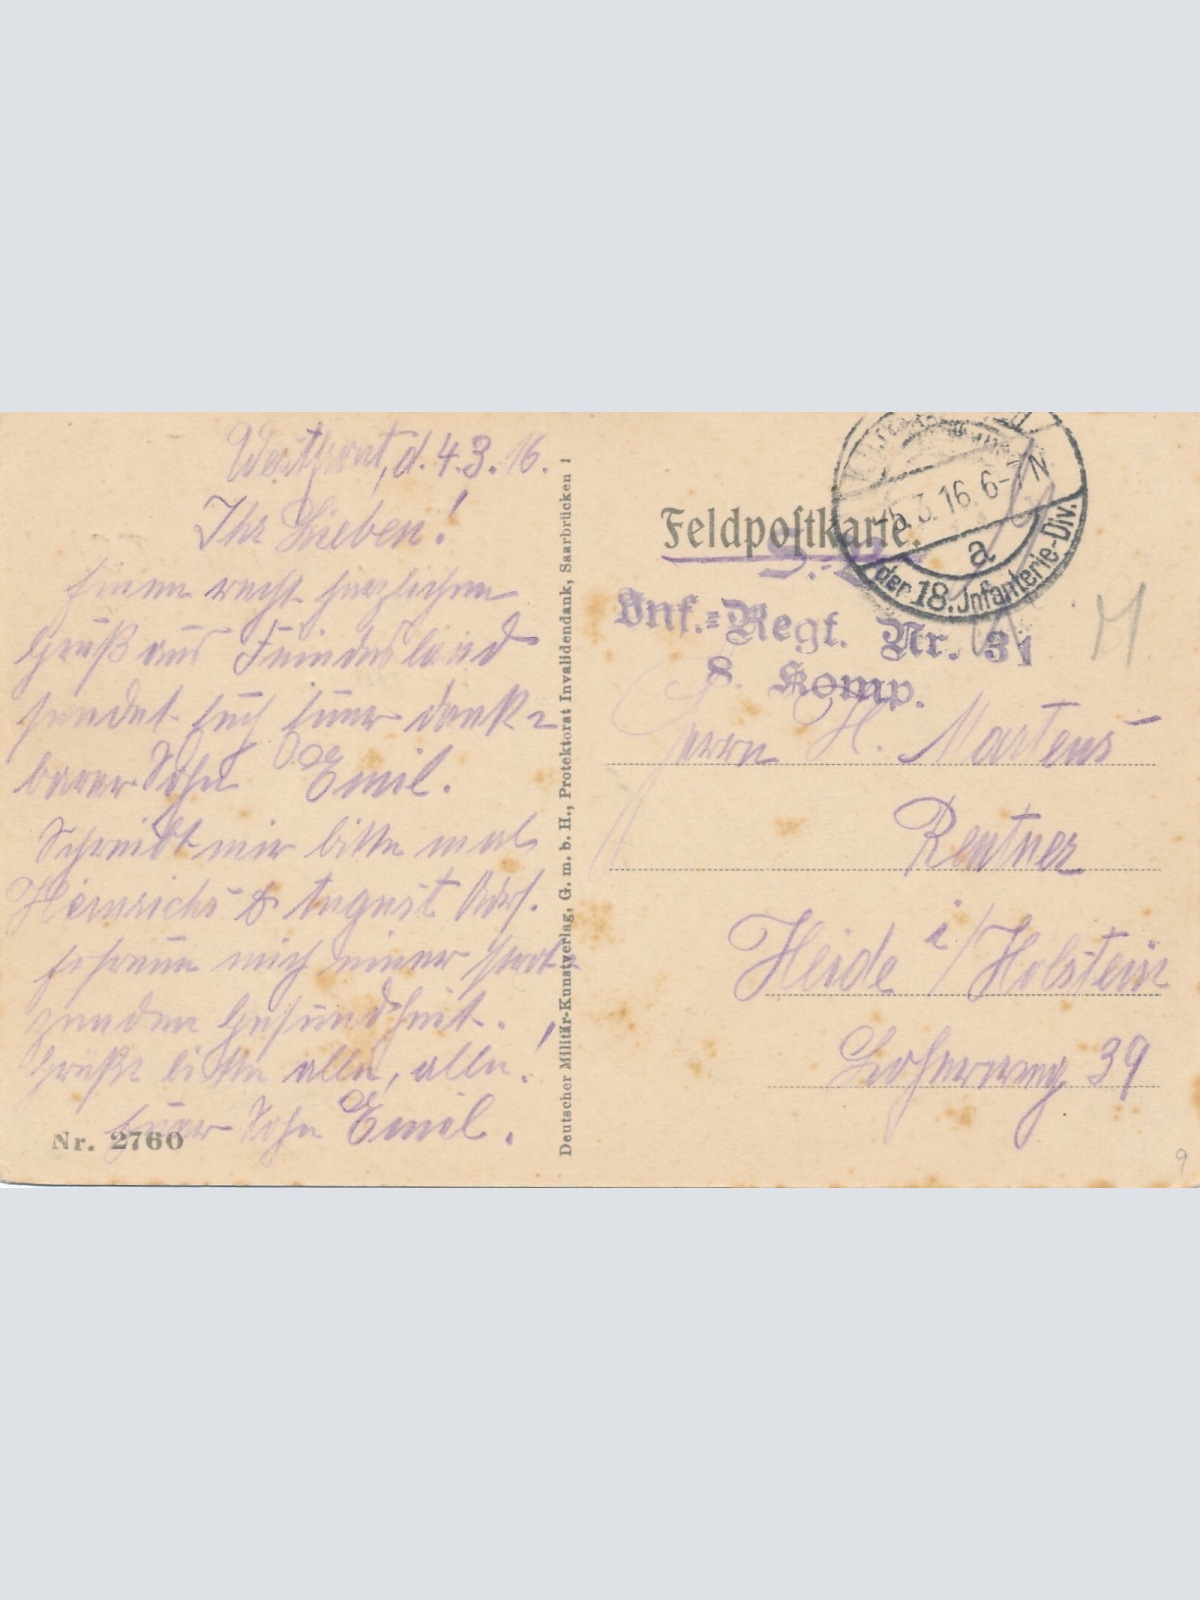 Westfront, d. 4.3.16.
Ihr Lieben!
Einen recht herzlichen
Gruß aus Feindesland
sendet Euch Euer dank-
barer Sohn Emil.
Schreibt mir bitte mal
Heinrichs & August Adrs.
Erfreue mich einer strot-
zenden Gesundheit.
Grüßt bitte alle, alle!
Euer Sohn Emil.
Nr. 2760
Deutscher Militär-Kunstverlag, G. m. b. H., Protektorat Invalidendank, Saarbrücken 1
Feldpostkarte.
5.3.16. 6-7 N
a
der 18. Infanterie-Div.
S. B.
Inf.-Regt. Nr. 31
8. Komp.
Herrn H. Martens
Rentner
Heide i/Holstein
Loherweg 39
9